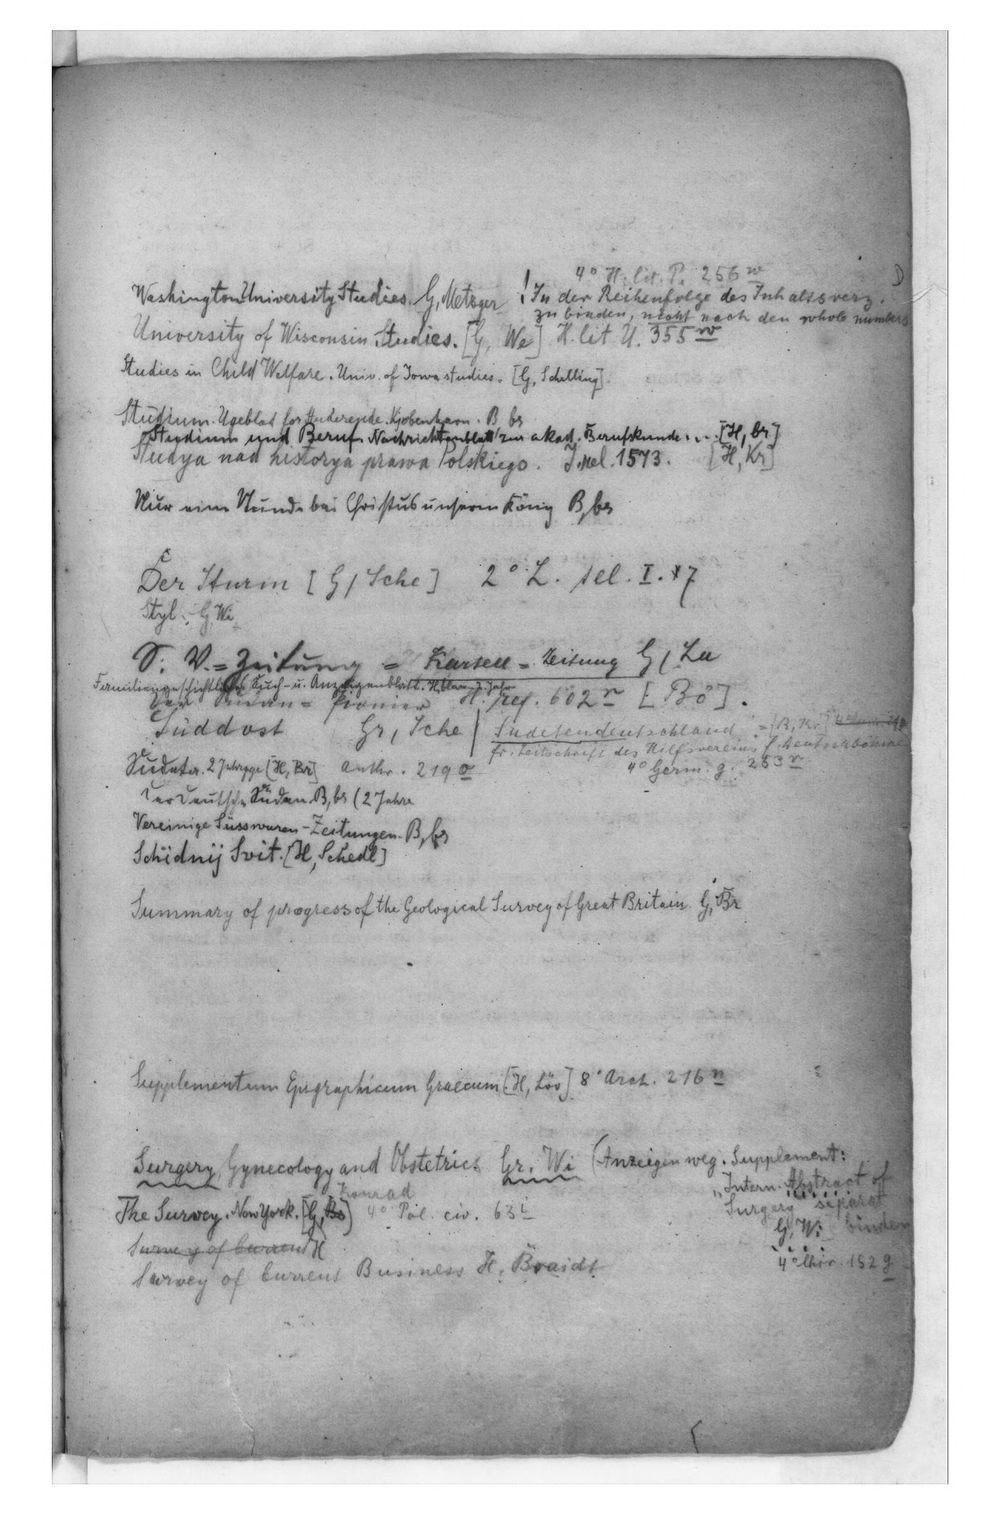 4° H. lit. P. 256 w
Washington University Studies. G, Metzger ! In der Reihenfolge des Inhaltsverz.
zu binden, nicht nach den whole numbers
University of Wisconsin Studies. [G, We] H. lit. U. 355 w
Studies in Child Welfare. Univ. of Iowa studies. [G, Schelling].
Studium. Ugeblad for Studerende. Kjobenhavn. B br
Studium und Beruf. Nachrichtenblatt zur akad. Berufskunde... [H, br]
Studya nad historya prawa Polskiego. J. rel. 1573. [H, Kr]
Nur eine Stunde bei Christus unserm König B, br
Der Sturm [G / Sche] 2° L. sel. I. 87
Styl. G, Wi
S. V. = Zeitung = Kartell = Zeitung G / Lu
Familiengeschichtliches Such- u. Anzeigenblatt.
Der Sudan = Pionier H. ref. 602 n [Bö].
Südost Gr, Sche
Sudetendeutschland = [B, Kr]
fr. Zeitschrift des Hilfsvereins f. Deutschböhmen
4° Germ. g. 253 n
Sudeta. 2 Jahrgge [H, Br] Anthr. 219 o
Der Deutsche Süden. B, br (2 Jahre
Vereinige Süsswaren-Zeitungen. B, br
Schidnij Svit. [H, Schedl]
Summary of progress of the Geological Survey of Great Britain. G, Br
Supplementum Epigraphicum Graecum [H, Löv] 8° Arch. 216 n
Surgery, Gynecology and Obstetrics Gr. Wi (Anzeigen weg. Supplement:
"Intern. Abstract of
Surgery separat
G, Wi binden
4° Chir. 152 g
Konrad
The Survey. New York. [G, Bs] 4° Pol. civ. 63 i
Survey of Current H
Survey of Current Business H. Braidt